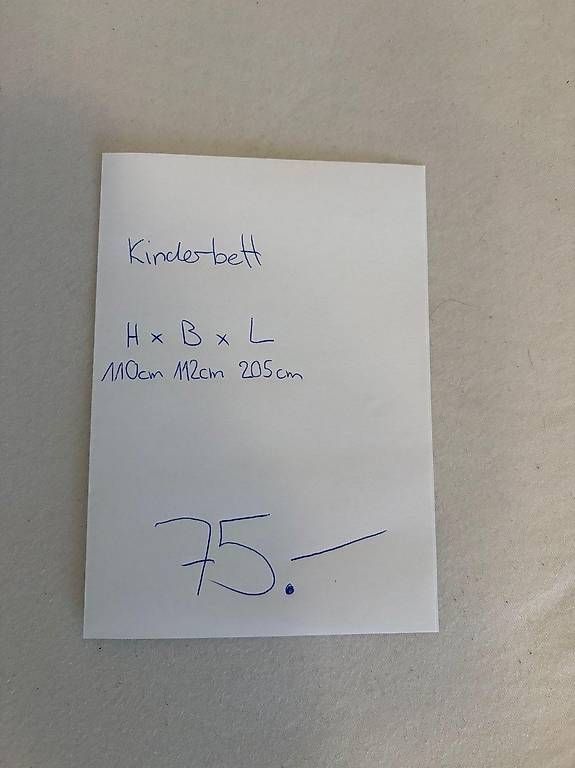 Kinderbett
H x B x L
110cm 112cm 205cm
75.-